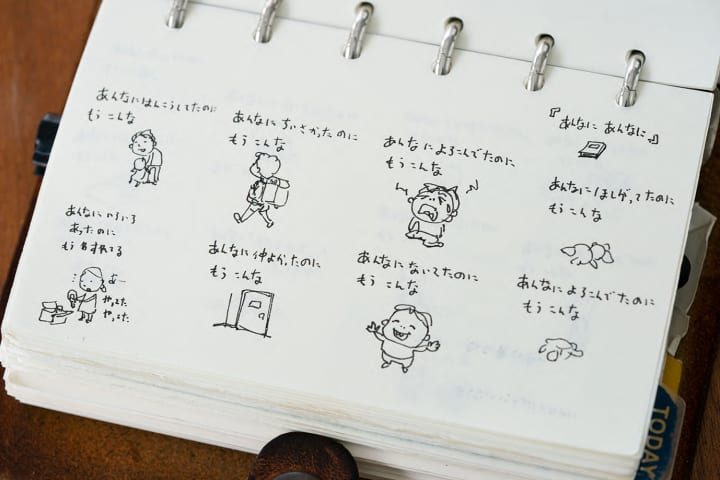 『あんなに あんなに』
あんなに ほしがってたのに
もう こんな
あんなに よろこんでたのに
もう こんな
あんなに よろこんでたのに
もう こんな
あんなに ないてたのに
もう こんな
あんなに ちいさかったのに
もう こんな
あんなに 仲よかったのに
もう こんな
あんなに はんこうしてたのに
もう こんな
あんなに いろいろ
あったのに
もう わすれてる
やってた
やってた
TODAY